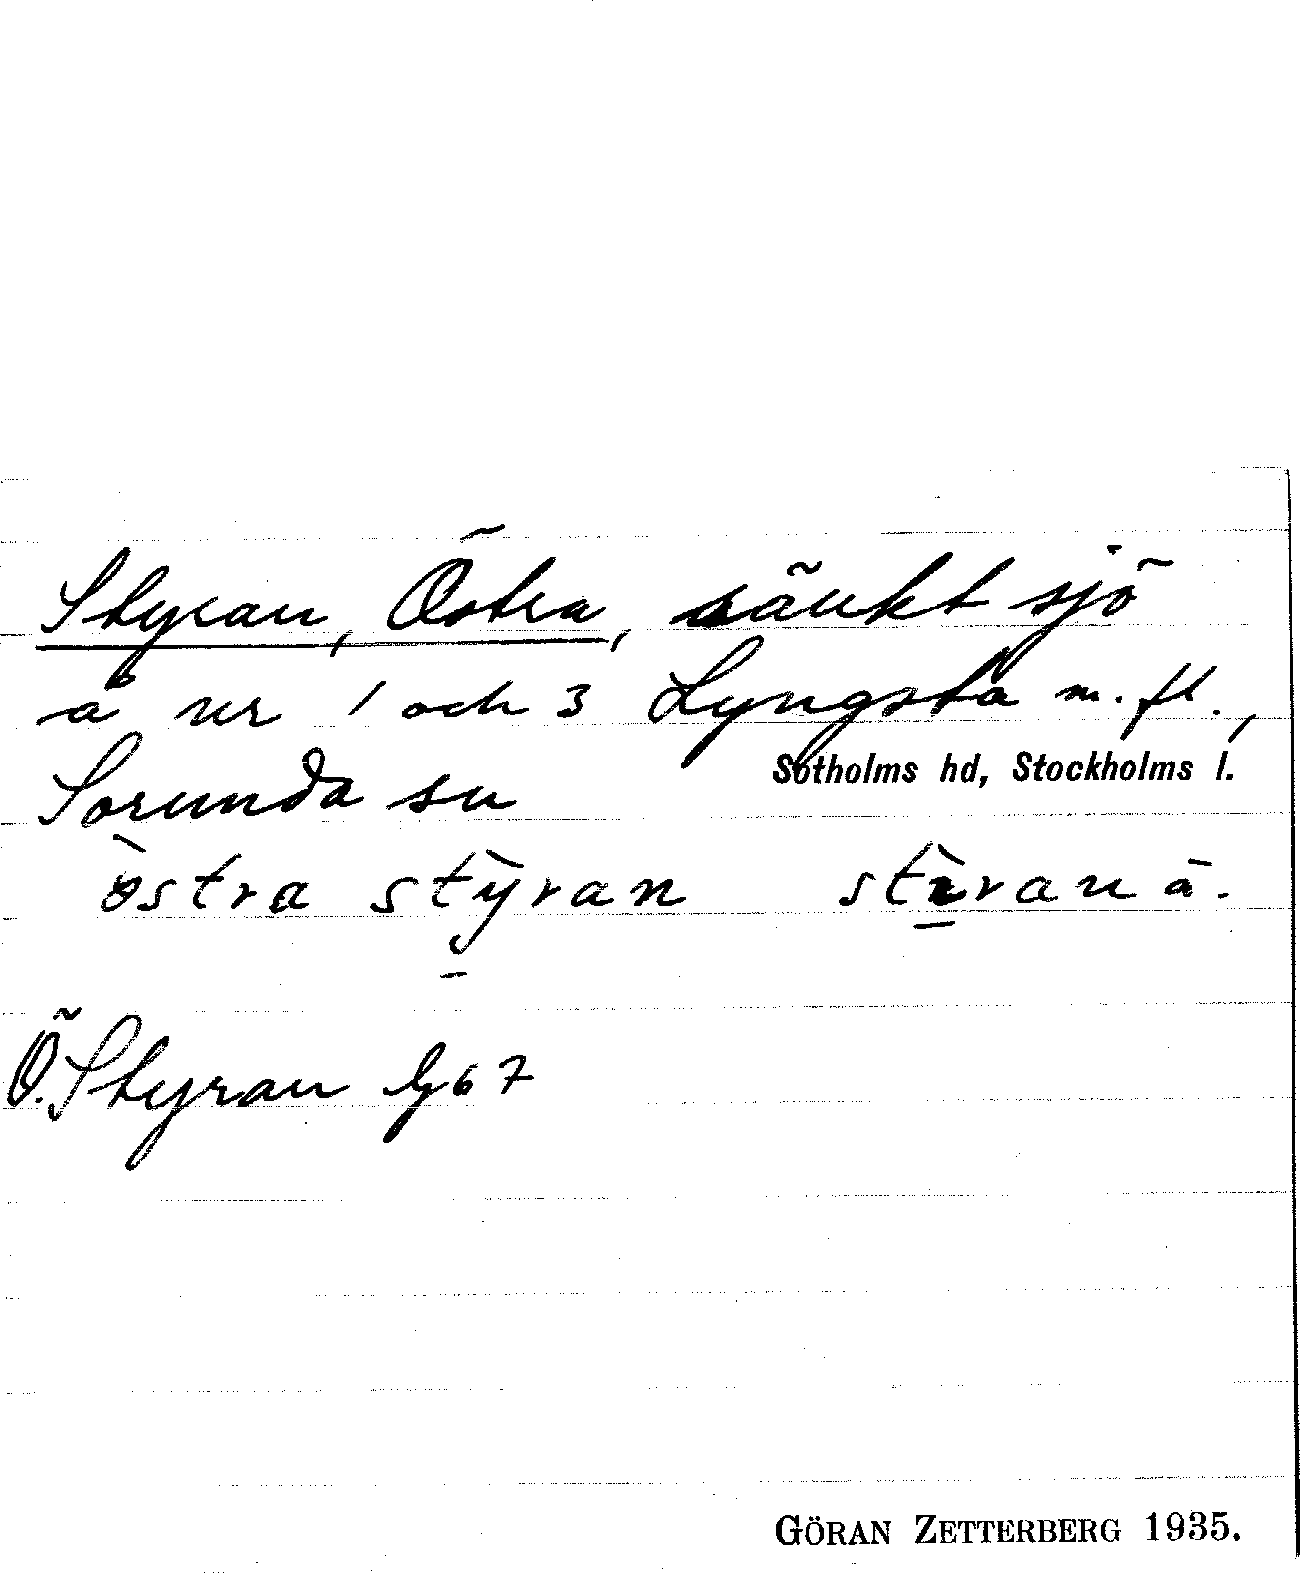 Styran, Östra, sänkt sjö
å nr 1 och 3 Lyngsta m. fl.,
Sotholms hd, Stockholms l.
Sorunda sn
östra styran
Ö. Styran
GÖRAN ZETTERBERG 1935.